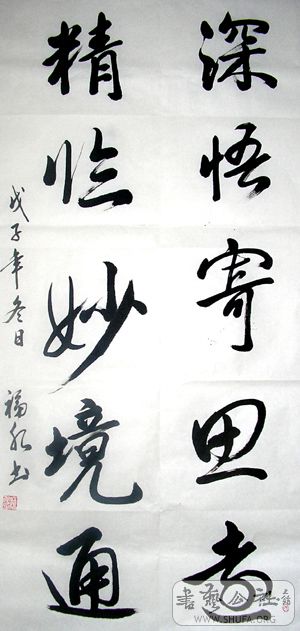 深悟寄思
精临妙境通
戊子年冬日 福 书
書藝公社
WWW.SHUFA.ORG